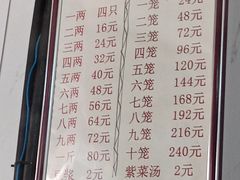 一两 四只 一笼 24元
二两 16元 二笼 48元
三两 24元 三笼 72元
四两 32元 四笼 96元
五两 40元 五笼 120元
六两 48元 六笼 144元
七两 56元 七笼 168元
八两 64元 八笼 192元
九两 72元 九笼 216元
一斤 80元 十笼 240元
浆 2元 紫菜汤 2元